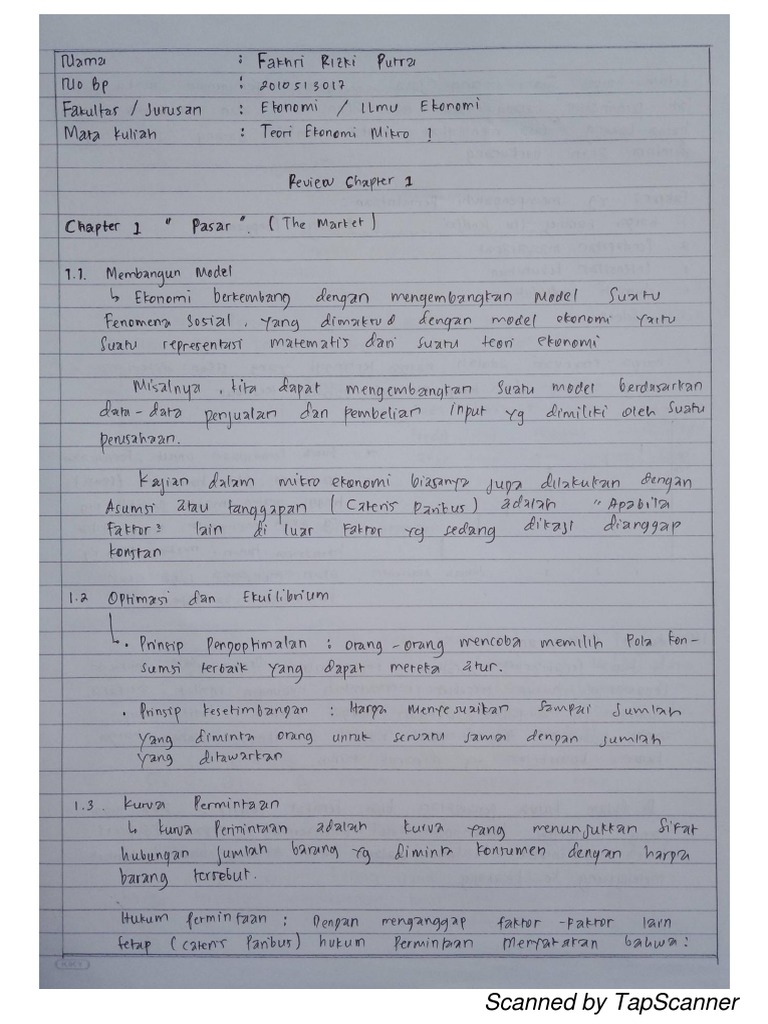 Nama : Fakhri Rizki Putra
No Bp : 2010513017
Fakultas / Jurusan : Ekonomi / Ilmu Ekonomi
Mata kuliah : Teori Ekonomi Mikro 1
Review Chapter 1
Chapter 1 " Pasar ". ( The Market )
1.1. Membangun Model
↳ Ekonomi berkembang dengan mengembangkan Model Suatu
Fenomena Sosial, yang dimaksud dengan model ekonomi yaitu
Suatu representasi matematis dari suatu teori ekonomi
Misalnya, kita dapat mengembangkan Suatu model berdasarkan
data-data penjualan dan pembelian input yg dimiliki oleh Suatu
perusahaan.
Kajian dalam mikro ekonomi biasanya juga dilakukan dengan
Asumsi atau tanggapan ( Cateris Paribus ) adalah " Apabila
Faktor² lain di luar Faktor yg sedang dikaji dianggap
konstan
1.2 Optimasi dan Ekuilibrium
↳ • Prinsip Pengoptimalan : orang-orang mencoba memilih Pola kon-
sumsi terbaik yang dapat mereka atur.
• Prinsip kesetimbangan : Harga Menyesuaikan Sampai Jumlah
yang diminta orang untuk sesuatu sama dengan jumlah
yang ditawarkan
1.3. Kurva Permintaan
↳ kurva Permintaan adalah kurva yang menunjukkan Sifat
hubungan jumlah barang yg diminta konsumen dengan harga
barang tersebut.
Hukum Permintaan : Dengan menganggap faktor-Faktor lain
tetap ( Cateris Paribus ) hukum Permintaan Menyatakan bahwa :
Scanned by TapScanner